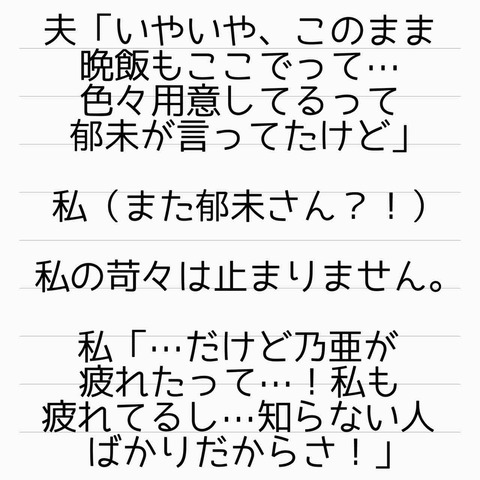 夫「いやいや、このまま
晩飯もここでって…
色々用意してるって
郁未が言ってたけど」
私（また郁未さん？！）
私の苛々は止まりません。
私「…だけど乃亜が
疲れたって…！私も
疲れてるし…知らない人
ばかりだからさ！」